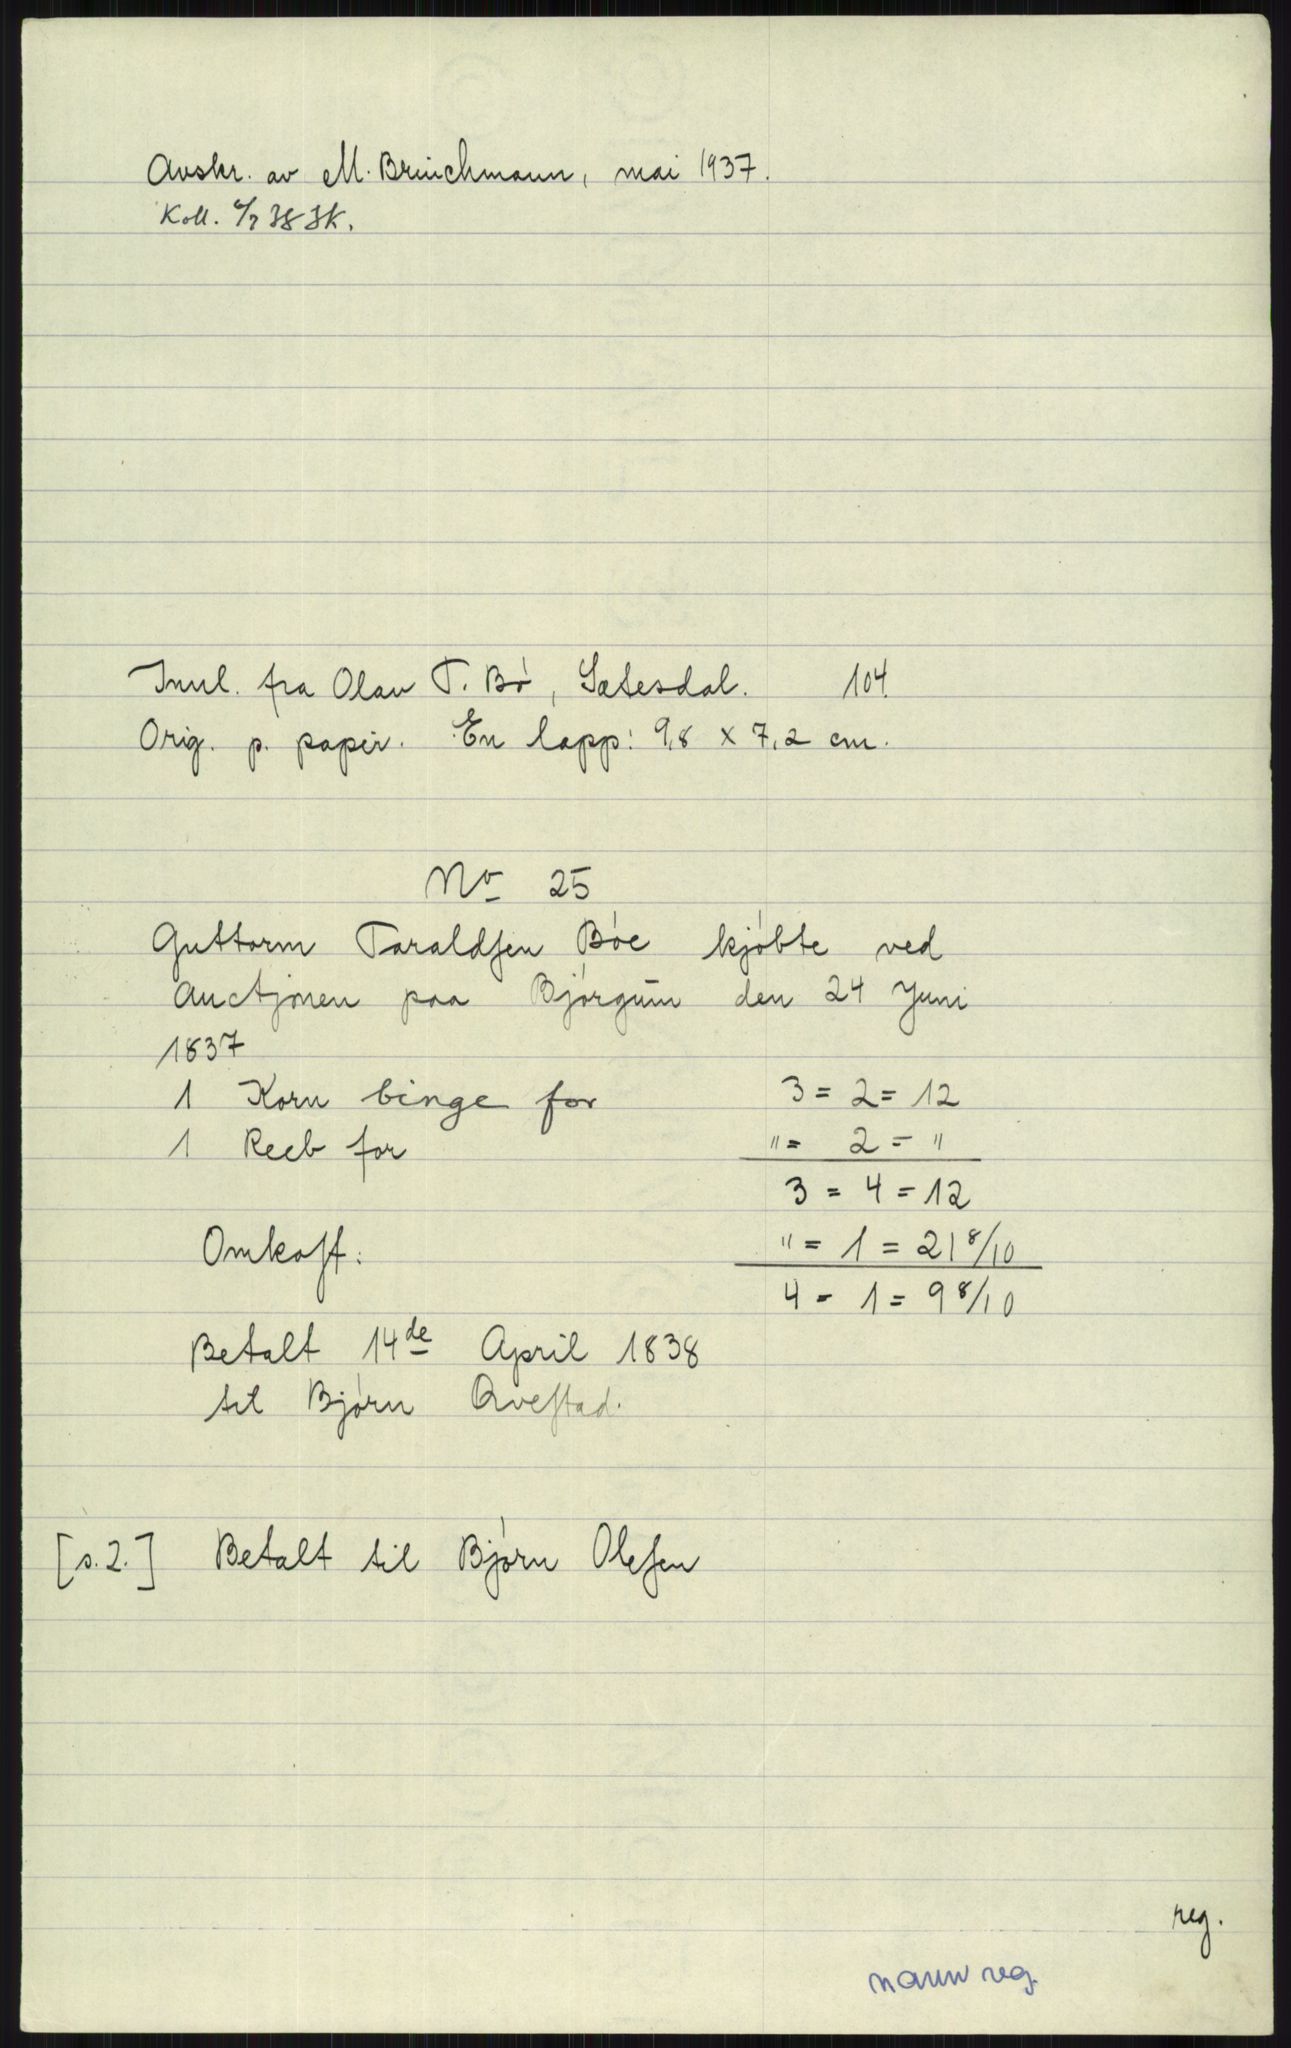 Avskr. av M. Brinchmann, mai 1937.
Koll. 6/7 38 JK.
Innl. fra Olav T. Bø, Sætesdal. 104
Orig. p. papir. En lapp: 9,8 x 7,2 cm.
No 25
Guttorm Taraldsen Bøe kjøbte ved
Auctjonen paa Bjørgum den 24 Juni
1837
1 Korn binge for 3 = 2 = 12
1 Reeb for " = 2 = "
3 = 4 = 12
Omkost: " = 1 = 21 8/10
4 = 1 = 9 8/10
Betalt 14de April 1838
til Bjørn Qvestad.
[s. 2.] Betalt til Bjørn Olesen
reg.
navn reg.